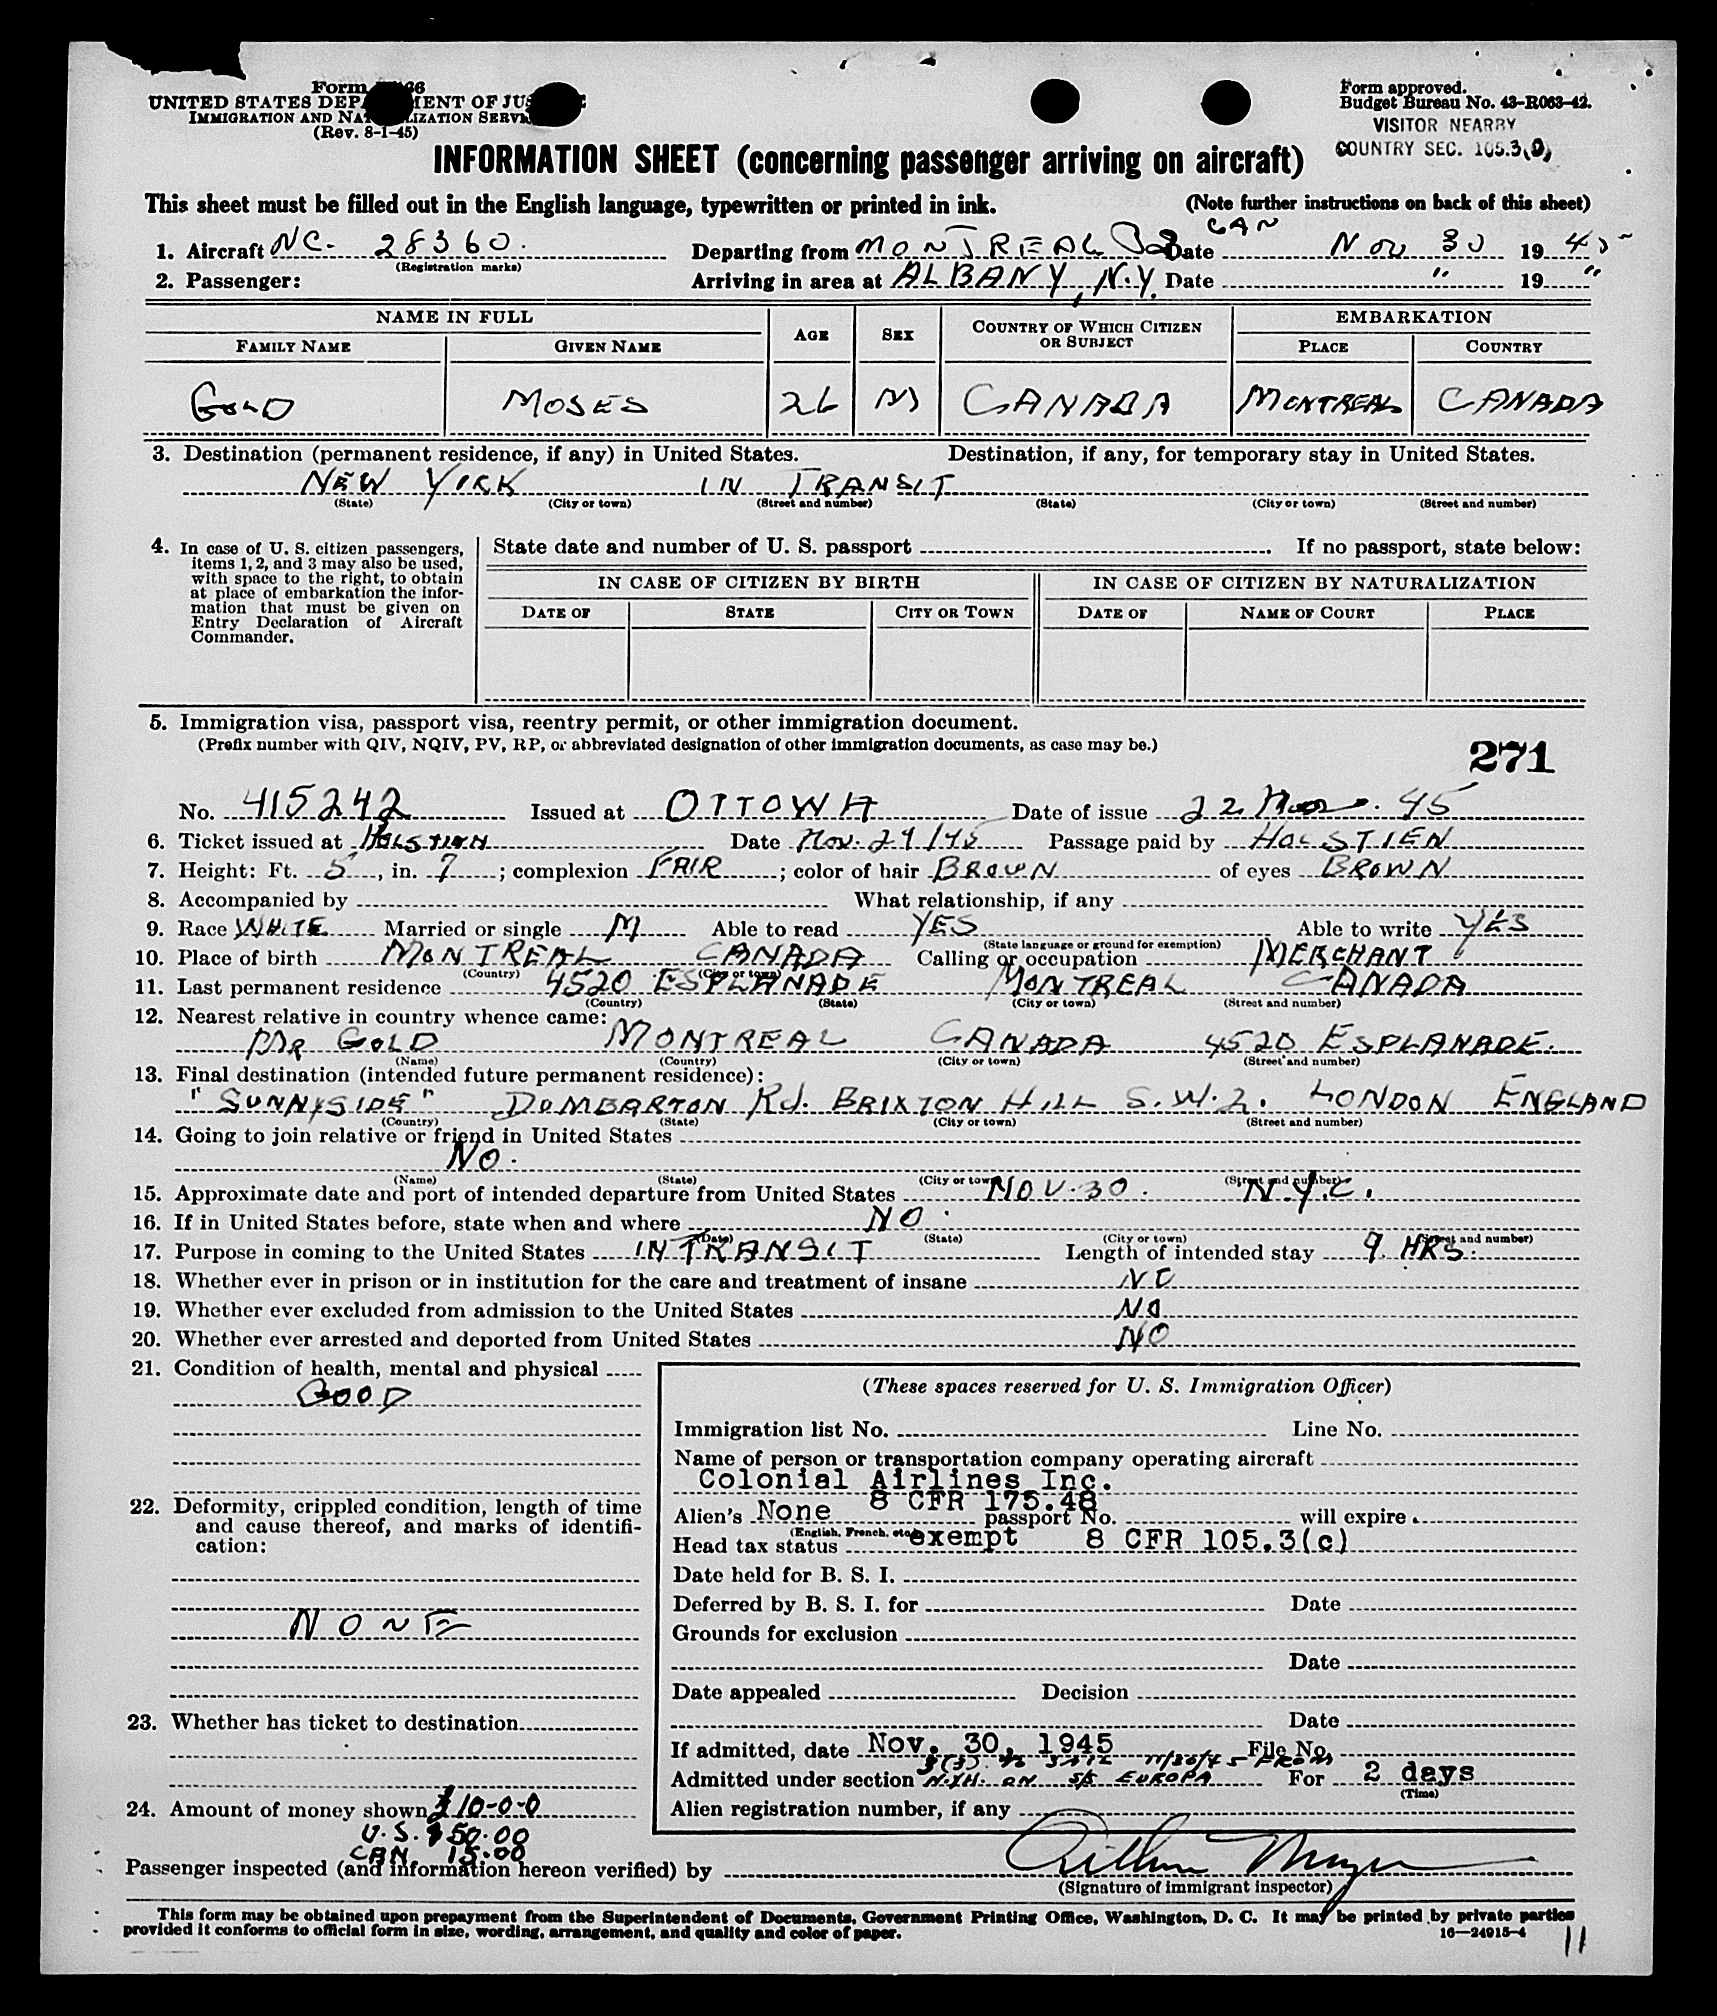 Form 66
UNITED STATES DEPA MENT OF JUS E
IMMIGRATION AND NAT LIZATION SERVI
(Rev. 8-1-45)
Form approved.
Budget Bureau No. 43-R063-42.
VISITOR NEARBY
COUNTRY SEC. 105.3
INFORMATION SHEET (concerning passenger arriving on aircraft)
This sheet must be filled out in the English language, typewritten or printed in ink. (Note further instructions on back of this sheet)
CAN
1. Aircraft NC- 28360. Departing from MONTREAL Date Nov 30 19 45
(Registration marks)
2. Passenger: Arriving in area at ALBANY, N.Y. Date " 19 "
NAME IN FULL AGE SEX COUNTRY OF WHICH CITIZEN OR SUBJECT EMBARKATION
FAMILY NAME GIVEN NAME PLACE COUNTRY
GOLD MOSES 26 M CANADA MONTREAL CANADA
3. Destination (permanent residence, if any) in United States. Destination, if any, for temporary stay in United States.
NEW YORK IN TRANSIT
(State) (City or town) (Street and number) (State) (City or town) (Street and number)
4. In case of U. S. citizen passengers,
items 1, 2, and 3 may also be used,
with space to the right, to obtain
at place of embarkation the infor-
mation that must be given on
Entry Declaration of Aircraft
Commander.
State date and number of U. S. passport . If no passport, state below:
IN CASE OF CITIZEN BY BIRTH IN CASE OF CITIZEN BY NATURALIZATION
DATE OF STATE CITY OR TOWN DATE OF NAME OF COURT PLACE
5. Immigration visa, passport visa, reentry permit, or other immigration document.
(Prefix number with QIV, NQIV, PV, RP, or abbreviated designation of other immigration documents, as case may be.)
271
No. 415242 Issued at OTTOWA Date of issue 22 Nov. 45
6. Ticket issued at HOLSTIEN Date Nov. 29/45 Passage paid by HOLSTIEN
7. Height: Ft. 5, in. 7; complexion FAIR; color of hair BROWN of eyes BROWN
8. Accompanied by What relationship, if any
9. Race WHITE Married or single M Able to read YES Able to write YES
(State language or ground for exemption)
10. Place of birth MONTREAL CANADA Calling or occupation MERCHANT
(Country) (City or town)
11. Last permanent residence 4520 ESPLANADE MONTREAL CANADA
(Country) (State) (City or town) (Street and number)
12. Nearest relative in country whence came:
MR GOLD MONTREAL CANADA 4520 ESPLANADE.
(Name) (Country) (City or town) (Street and number)
13. Final destination (intended future permanent residence):
"SUNNYSIDE" DUMBARTON Rd. BRIXTON HILL S.W.2. LONDON ENGLAND
(Country) (State) (City or town) (Street and number)
14. Going to join relative or friend in United States
NO.
(Name) (State) (City or town) (Street and number)
15. Approximate date and port of intended departure from United States NOV. 30. N.Y.C.
16. If in United States before, state when and where NO.
(Date) (State) (City or town) (Street and number)
17. Purpose in coming to the United States IN TRANSIT Length of intended stay 9 HRS.
18. Whether ever in prison or in institution for the care and treatment of insane NO
19. Whether ever excluded from admission to the United States NO
20. Whether ever arrested and deported from United States NO
21. Condition of health, mental and physical
GOOD
22. Deformity, crippled condition, length of time
and cause thereof, and marks of identifi-
cation:
NONE
23. Whether has ticket to destination
24. Amount of money shown £10-0-0
U.S. $50.00
CAN 15.00
(These spaces reserved for U. S. Immigration Officer)
Immigration list No. Line No.
Name of person or transportation company operating aircraft
Colonial Airlines Inc.
8 CFR 175.48
Alien's None passport No. will expire
(English, French, etc.)
Head tax status exempt 8 CFR 105.3(c)
Date held for B. S. I.
Deferred by B. S. I. for Date
Grounds for exclusion
Date
Date appealed Decision
Date
If admitted, date Nov. 30, 1945 File No.
3(3) to SAIL 11/30/45 FROM
Admitted under section N.Y.H. ON S/S EUROPA For 2 days
(Time)
Alien registration number, if any
Passenger inspected (and information hereon verified) by
(Signature of immigrant inspector)
This form may be obtained upon prepayment from the Superintendent of Documents, Government Printing Office, Washington, D. C. It may be printed by private parties
provided it conforms to official form in size, wording, arrangement, and quality and color of paper. 16—24915-4
11